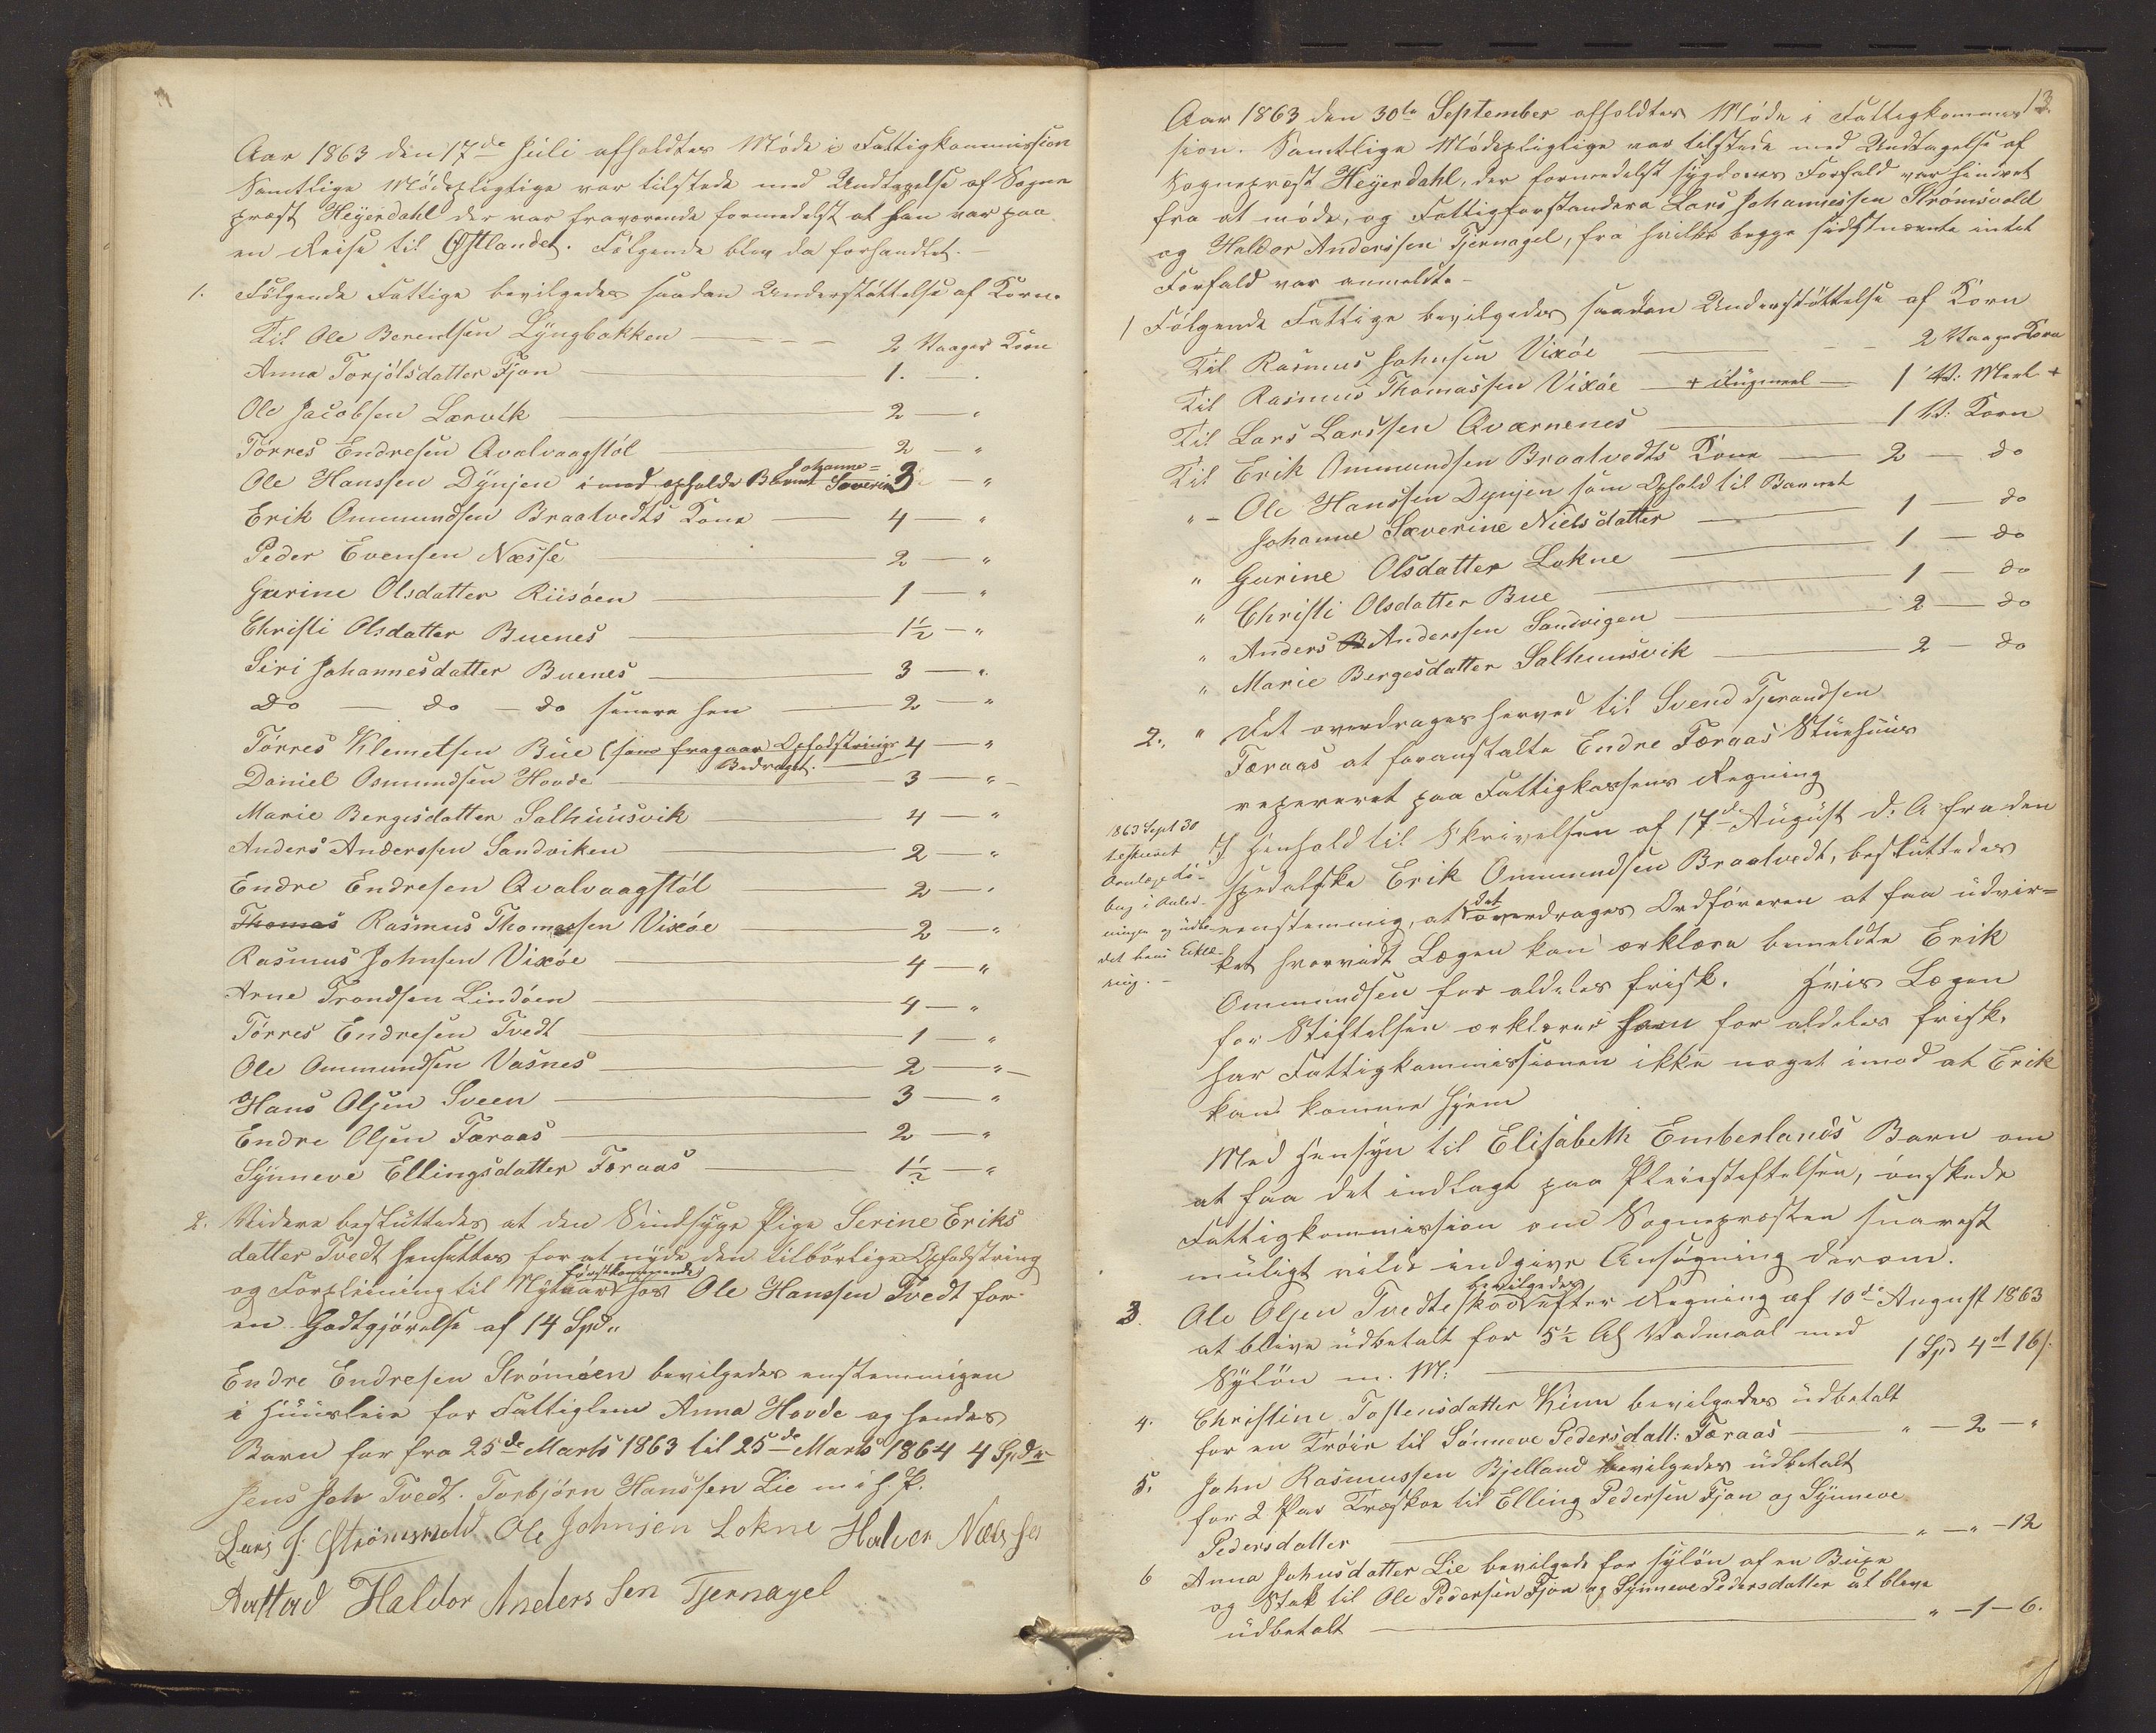 Aar 1863 den 17de Juli afholdtes Møde i Fattigkommission
Samtlige Mødepligtige var tilstede med Undtagelse af Sogne
præst Heyerdahl der var fraværende formedelst at han var paa
en Reise til Østlandet. Følgende blev da forhandlet. –
1. Følgende Fattige bevilgedes saadan Understøttelse af Korn.
Til Ole Berentsen Lyngbakken – – – 2 Vaager Korn
Anna Torjølsdatter Fjon — 1. — .
Ole Jacobsen Lærvik — 2 — "
Tørres Endresen Qvalvaagstøl — 2 — "
Johanne=
Ole Hanssen Dynjen i mod opholde Barnet Severin 3 — "
Erik Ommundsen Braatvedts Kone — 4 — "
Peder Evensen Næsse — 2 — "
Gurine Olsdatter Riisøen — 1 — "
Christi Olsdatter Buenes — 1½ — "
Siri Johannesdatter Buenes — 3 — "
do — do — do senere hen — 2 — "
Tørres Klemetsen Bue (som fragaar Opfodstrings 4 — "
Bedraget.
Daniel Osmundsen Hovde — 3 — "
Marie Bergesdatter Salhuusvik — 4 — "
Anders Anderssen Sandviken — 2 — "
Endre Endresen Qvalvaagstøl — 2 — "
Thomas Rasmus Thomassen Vixøe — 2 — "
Rasmus Johnsen Vixøe — 4 — "
Arne Trondsen Lindøen — 4 — "
Tørres Endresen Tvedt — 1 — "
Ole Ommundsen Vasnes — 2 — "
Hans Olsen Sveen — 3 — "
Endre Olsen Færaas — 2 — "
Synneve Ellingsdatter Færaas — 1½ — "
2. Videre besluttedes at den Sindsyge Pige Serine Eriks
datter Tvedt hensættes for at nyde den tilbørlige Opfodstring
førstkommende
og Forpleining til Nytaar hos Ole Hanssen Tvedt for
en Godtgjørelse af 14 Spd.
Endre Endresen Strømøen bevilgedes enstemmigen
i Huusleie for Fattiglem Anna Hovde og hendes
Barn for fra 25de Marts 1863 til 25de Marts 1864 4 Spd
Jens Joh Tvedt. Torbjørn Hanssen Lie m i h. P.
Lars J. Strømsvold Ole Johnsen Lokne Halver Næls sen
Aastad Haldor Anders Sen Tjernagel
13.
Aar 1863 den 30te September afholdtes Møde i Fattigkommis
sion. Samtlige Mødepligtige var tilstede med Undtagelse af
Sognepræst Heyerdahl, der formedelst sygdoms Forfald var hindret
fra at møde, og Fattigforstandere Lars Johannessen Strømsvold
og Haldor Anderssen Tjernagel, fra hvilke begge sidstnævnte intet
Forfald var anmeldt. –
1 Følgende Fattige bevilgedes saadan Understøttelse af Korn
Til Rasmus Johnsen Vixøe — 2 Vaager Korn
Til Rasmus Thomassen Vixøe — + Rugmeel — 1 V: Meel +
Til Lars Larssen Qvarnenes — 1 V: Korn
Til Erik Ommundsen Braatvedts Kone — 2 — do
" – Ole Hanssen Dynjen som Ophold til Barnet
Johanne Sæverine Nielsdatter — 1 — do
" Gurine Olsdatter Lokne — 1 — do
" Christi Olsdatter Bue — 1 — do
" Anders B Anderssen Sandvigen — 2 — do
" Marie Bergesdatter Salhuusvik — 2 — do
2. " Det overdrages herved til Svend Tjerandsen
Færaas at foranstalte Endre Færaas Stuehuus
repereret paa Fattigkassens Regning
1863 Sept 30
I Henhold til Skrivelsen af 17de August d: A fra den
spedalske Erik Ommundsen Braatvedt, besluttedes
det
eenstemmig, at overdrages Ordføreren at faa udvir=
ket hvorvidt Lægen kan erklære bemeldte Erik
Ommundsen for aldeles frisk. Hvis Lægen
for Stiftelsen erklærer ham for aldeles frisk,
har Fattigkommissionen ikke noget imod at Erik
kan komme hjem
Med Hensyn til Elisabeth Emberlands Barn om
at faa det indlagt paa Pleiestiftelsen, ønskede
Fattigkommission om Sognepræsten snarest
muligt vilde indgive Ansøgning derom.
bevilgedes
3. Ole Olsen Tvedteskod efter Regning af 10de August 1863
at blive udbetalt for 5½ Al Vadmaal med
Syløn m. M: — 1 Spd 4 ort 16 s.
4. Christine Tostensdatter Kinn bevilgedes udbetalt
for en Trøie til Sønneve Pedersdatt: Færaas — " — 2 — "
5. John Rasmussen Bjelland bevilgedes udbetalt
for 2 Par Træskoe til Elling Pedersen Fjon og Synneve
Pedersdatter — " — " – 12
6 Anna Johnsdatter Lie bevilgede for syløn af en Buxe
og Stak til Ole Pedersen Fjon og Synneve Pedersdatter at blive
udbetalt — " – 1 – 6.